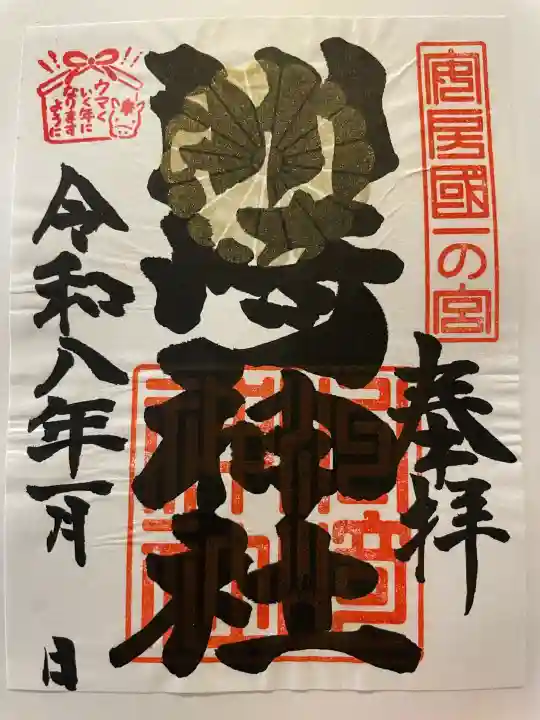 安房國一の宮
奉拝
洲崎神社
令和八年一月 日
ウマく
いく年に
なります
ように